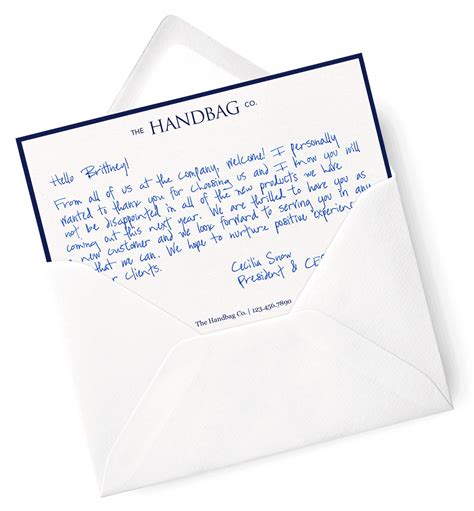 THE HANDBAG CO.
Hello Brittney!
From all of us at the company, welcome! I personally
wanted to thank you for choosing us and I know you will
not be disappointed in all of the new products we have
coming out this next year. We are thrilled to have you as
a new customer and we look forward to serving you in any
that we can. We hope to nurture positive experien
r clients.
Cecilia Snow
President & CE
The Handbag Co. | 123.456.7890